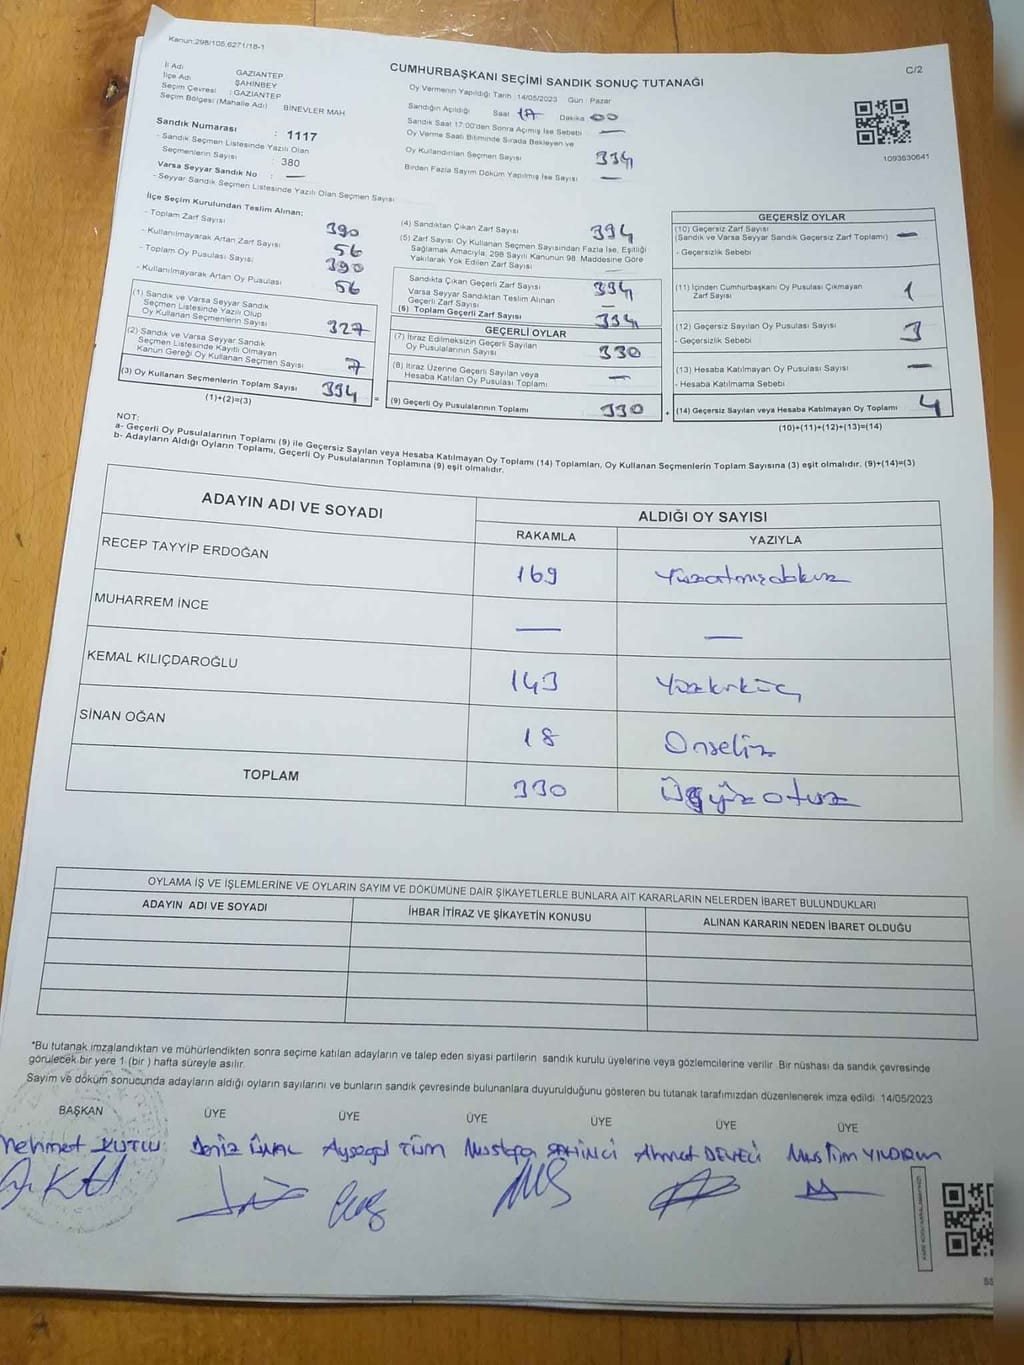 Kanun:298/105,6271/18-1
CUMHURBAŞKANI SEÇİMİ SANDIK SONUÇ TUTANAĞI
C/2
İl Adı GAZİANTEP
İlçe Adı ŞAHİNBEY
Seçim Çevresi : GAZİANTEP
Seçim Bölgesi (Mahalle Adı) BİNEVLER MAH
Sandık Numarası : 1117
- Sandık Seçmen Listesinde Yazılı Olan
Seçmenlerin Sayısı : 380
Varsa Seyyar Sandık No : —
- Seyyar Sandık Seçmen Listesinde Yazılı Olan Seçmen Sayısı
Oy Vermenin Yapıldığı Tarih : 14/05/2023 Gün : Pazar
Sandığın Açıldığı Saat 17 Dakika 00
Sandık Saat 17:00'den Sonra Açımış İse Sebebi —
Oy Verme Saati Bitiminde Sırada Bekleyen ve
Oy Kullandırılan Seçmen Sayısı 334
Birden Fazla Sayım Döküm Yapılmış İse Sayısı —
1093630641
İlçe Seçim Kurulundan Teslim Alınan:
- Toplam Zarf Sayısı 390
- Kullanılmayarak Artan Zarf Sayısı 56
- Toplam Oy Pusulası Sayısı 390
- Kullanılmayarak Artan Oy Pusulası 56
(1) Sandık ve Varsa Seyyar Sandık
Seçmen Listesinde Yazılı Olup
Oy Kullanan Seçmenlerin Sayısı 327
(2) Sandık ve Varsa Seyyar Sandık
Seçmen Listesinde Kayıtlı Olmayan
Kanun Gereği Oy Kullanan Seçmen Sayısı 7
(3) Oy Kullanan Seçmenlerin Toplam Sayısı 334
(1)+(2)=(3)
(4) Sandıktan Çıkan Zarf Sayısı 334
(5) Zarf Sayısı Oy Kullanan Seçmen Sayısından Fazla İse, Eşitliği
Sağlamak Amacıyla, 298 Sayılı Kanunun 98. Maddesine Göre
Yakılarak Yok Edilen Zarf Sayısı
Sandıkta Çıkan Geçerli Zarf Sayısı 334
Varsa Seyyar Sandıktan Teslim Alınan
Geçerli Zarf Sayısı —
(6) Toplam Geçerli Zarf Sayısı 334
GEÇERLİ OYLAR
(7) İtiraz Edilmeksizin Geçerli Sayılan
Oy Pusulalarının Sayısı 330
(8) İtiraz Üzerine Geçerli Sayılan veya
Hesaba Katılan Oy Pusulası Toplamı —
= (9) Geçerli Oy Pusulalarının Toplamı 330 +
GEÇERSİZ OYLAR
(10) Geçersiz Zarf Sayısı
(Sandık ve Varsa Seyyar Sandık Geçersiz Zarf Toplamı) —
- Geçersizlik Sebebi
(11) İçinden Cumhurbaşkanı Oy Pusulası Çıkmayan
Zarf Sayısı 1
(12) Geçersiz Sayılan Oy Pusulası Sayısı 3
- Geçersizlik Sebebi
(13) Hesaba Katılmayan Oy Pusulası Sayısı —
- Hesaba Katılmama Sebebi
(14) Geçersiz Sayılan veya Hesaba Katılmayan Oy Toplamı 4
(10)+(11)+(12)+(13)=(14)
NOT:
a- Geçerli Oy Pusulalarının Toplamı (9) ile Geçersiz Sayılan veya Hesaba Katılmayan Oy Toplamı (14) Toplamları, Oy Kullanan Seçmenlerin Toplam Sayısına (3) eşit olmalıdır. (9)+(14)=(3)
b- Adayların Aldığı Oyların Toplamı, Geçerli Oy Pusulalarının Toplamına (9) eşit olmalıdır.
ADAYIN ADI VE SOYADI ALDIĞI OY SAYISI
RAKAMLA YAZIYLA
RECEP TAYYİP ERDOĞAN 169 Yüzatmışdokuz
MUHARREM İNCE — —
KEMAL KILIÇDAROĞLU 143 Yüzkırküç
SİNAN OĞAN 18 Onsekiz
TOPLAM 330 Üçyüzotuz
OYLAMA İŞ VE İŞLEMLERİNE VE OYLARIN SAYIM VE DÖKÜMÜNE DAİR ŞİKAYETLERLE BUNLARA AİT KARARLARIN NELERDEN İBARET BULUNDUKLARI
ADAYIN ADI VE SOYADI İHBAR İTİRAZ VE ŞİKAYETİN KONUSU ALINAN KARARIN NEDEN İBARET OLDUĞU
*Bu tutanak imzalandıktan ve mühürlendikten sonra seçime katılan adayların ve talep eden siyasi partilerin sandık kurulu üyelerine veya gözlemcilerine verilir. Bir nüshası da sandık çevresinde
görülecek bir yere 1 (bir ) hafta süreyle asılır.
Sayım ve döküm sonucunda adayların aldığı oyların sayılarını ve bunların sandık çevresinde bulunanlara duyurulduğunu gösteren bu tutanak tarafımızdan düzenlenerek imza edildi. 14/05/2023
BAŞKAN ÜYE ÜYE ÜYE ÜYE ÜYE ÜYE
Mehmet KUTLU Deniz ÜNAL Ayşegül TÜM Mustafa ŞAHİNCİ Ahmet DEVECİ Müslüm YILDIRIM